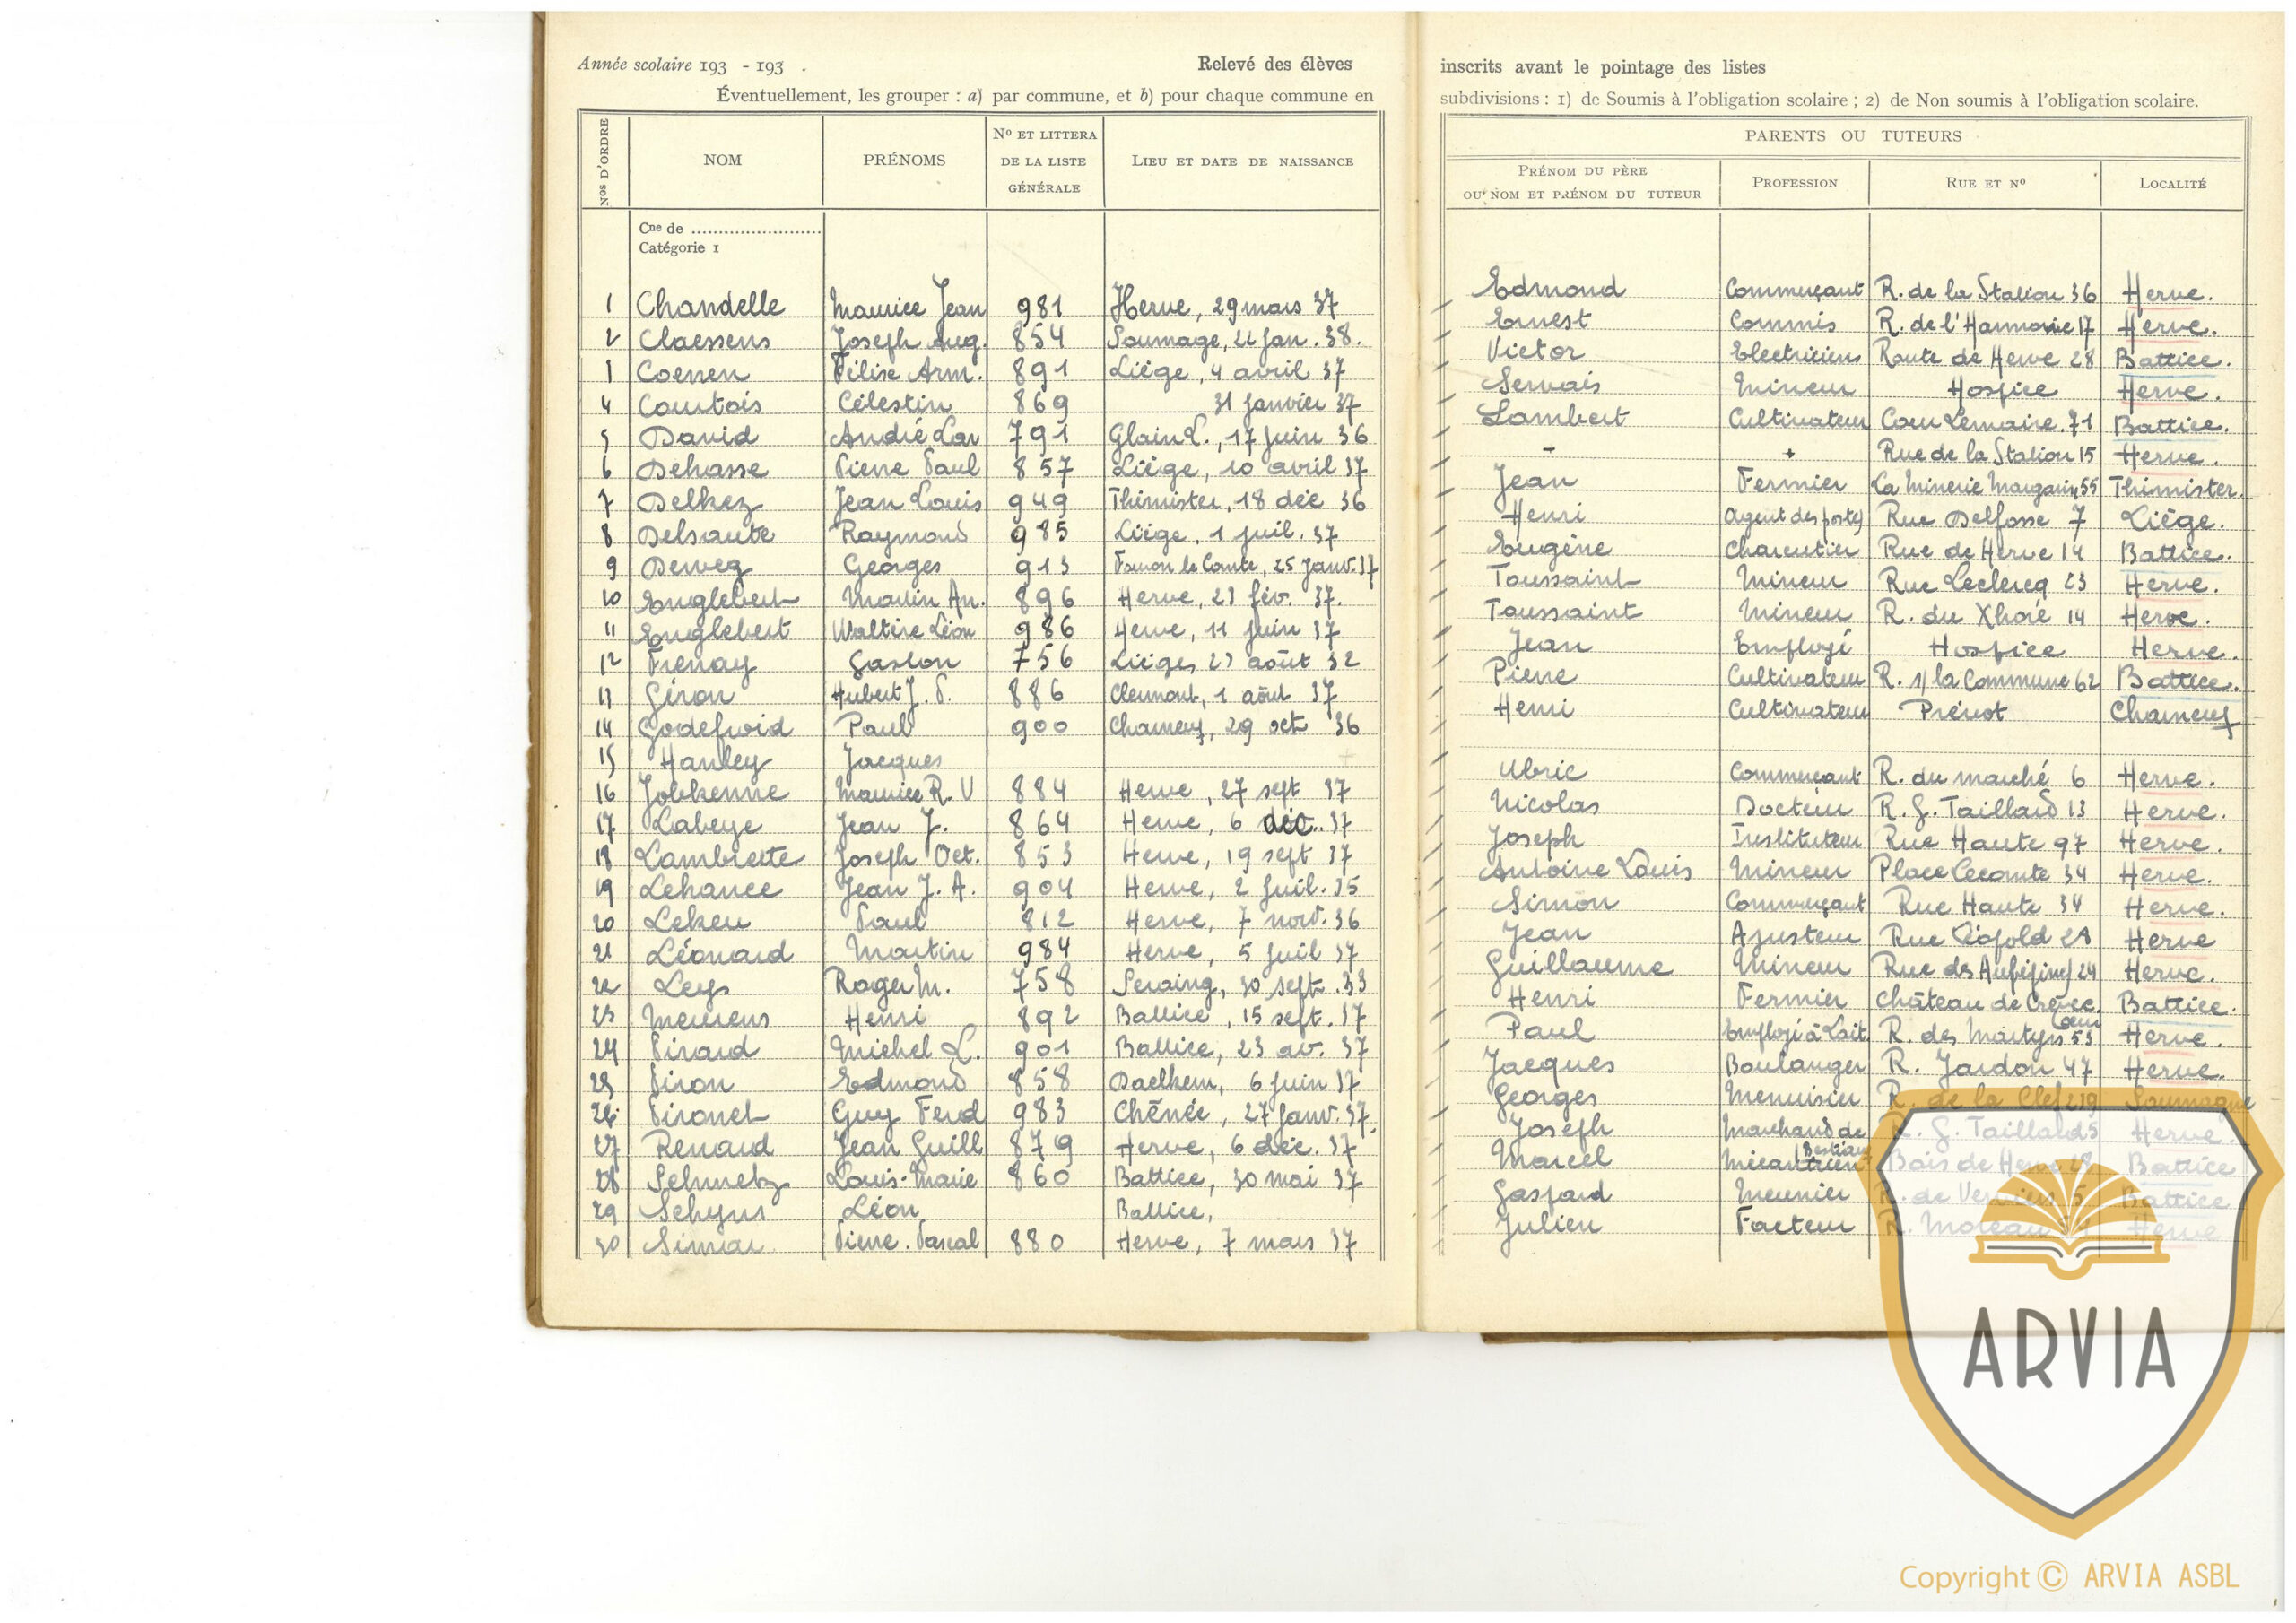 Année scolaire 193 - 193 . Relevé des élèves
Éventuellement, les grouper : a) par commune, et b) pour chaque commune en
Nos D'ORDRE NOM PRÉNOMS No ET LITTERA DE LA LISTE GÉNÉRALE LIEU ET DATE DE NAISSANCE
Cne de ........................
Catégorie 1
1 Chandelle Maurice Jean 981 Herve, 29 mars 37
2 Claessens Joseph Aug. 854 Soumage, 21 jan. 38.
3 Coenen Félise Arm. 891 Liège, 4 avril 37
4 Courtois Célestin 869 31 janvier 37
5 David André Lar 791 Glain L., 17 juin 36
6 Dehasse Pierre Paul 857 Liège, 10 avril 37
7 Delhez Jean Louis 949 Thimister, 18 déc 36
8 Delsaute Raymond 985 Liège, 1 juil. 37
9 Dewez Georges 913 25 janv. 37
10 Englebert Martin An. 896 Herve, 23 fév. 37.
11 Englebert Waltère Léon 986 Herve, 11 juin 37
12 Frenay Gaston 756 Liéges 23 août 32
13 Géron Hubert J. P. 886 Clermont, 1 août 37
14 Godefroid Paul 900 Charneux, 29 oct 36
15 Hanley Jacques
16 Jobkenne Maurice R. V 884 Herve, 27 sept 37
17 Labeye Jean J. 864 Herve, 6 déc. 37
18 Lambrette Joseph Oct. 853 Herve, 19 sept 37
19 Lehance Jean J. A. 904 Herve, 2 juil. 35
20 Lekeu Paul 812 Herve, 7 nov. 36
21 Léonard Martin 984 Herve, 5 juil 37
22 Leys Roger M. 758 Seraing, 30 sept. 33
23 Meurens Henri 892 Battice, 15 sept. 37
24 Pirard Michel L. 901 Battice, 23 av. 37
25 Piron Edmond 858 Daelhem, 6 juin 37
26 Pironet Guy Ferd 983 Chênée, 27 janv. 37.
27 Renard Jean Guill 879 Herve, 6 déc. 37
28 Schmetz Louis-Marie 860 Battice, 30 mai 37
29 Schyns Léon Battice,
30 Simar Pierre. Pascal 880 Herve, 7 mars 37
inscrits avant le pointage des listes
subdivisions : 1) de Soumis à l'obligation scolaire ; 2) de Non soumis à l'obligation scolaire.
PARENTS OU TUTEURS
PRÉNOM DU PÈRE OU NOM ET PRÉNOM DU TUTEUR PROFESSION RUE ET No LOCALITÉ
Edmond Commerçant R. de la Station 36 Herve.
Ernest Commis R. de l'Harmonie 17 Herve.
Victor Electricien Route de Herve 28 Battice.
Servais Mineur Hospice Herve.
Lambert Cultivateur Lemaire. 71 Battice.
- + Rue de la Station 15 Herve.
Jean Fermier La Minerie 55 Thimister.
Henri Agent des postes Rue Delfosse 7 Liège.
Eugène Charcutier Rue de Herve 14 Battice.
Toussaint Mineur Rue Leclercq 23 Herve.
Toussaint Mineur R. du Xhoré 14 Herve.
Jean Employé Hospice Herve.
Pierre Cultivateur R. s/ la Commune 62 Battice.
Henri Cultivateur Prévot Charneux
Ulric Commerçant R. du marché 6 Herve.
Nicolas Docteur R. G. Taillard 13 Herve.
Joseph Instituteur Rue Haute 97 Herve.
Antoine Louis Mineur Place Lecomte 34 Herve.
Simon Commerçant Rue Haute 34 Herve.
Jean Ajusteur Rue Léopold 28 Herve
Guillaume Mineur Rue des Aubépines 24 Herve.
Henri Fermier Château de Crèvecœur Battice.
Paul Employé à Lait. R. des Martyrs 53 Herve.
Jacques Boulanger R. Jardon 47 Herve.
Georges Menuisier R. de la Clef 219 Soumagne
Joseph Marchand de Bestiaux R. G. Taillard 5 Herve.
Marcel Mécanicien Bois de Herve 28 Battice
Gaspard Meunier R. de Verviers 5 Battice
Julien Facteur R. Moreau Herve
ARVIA
Copyright © ARVIA ASBL